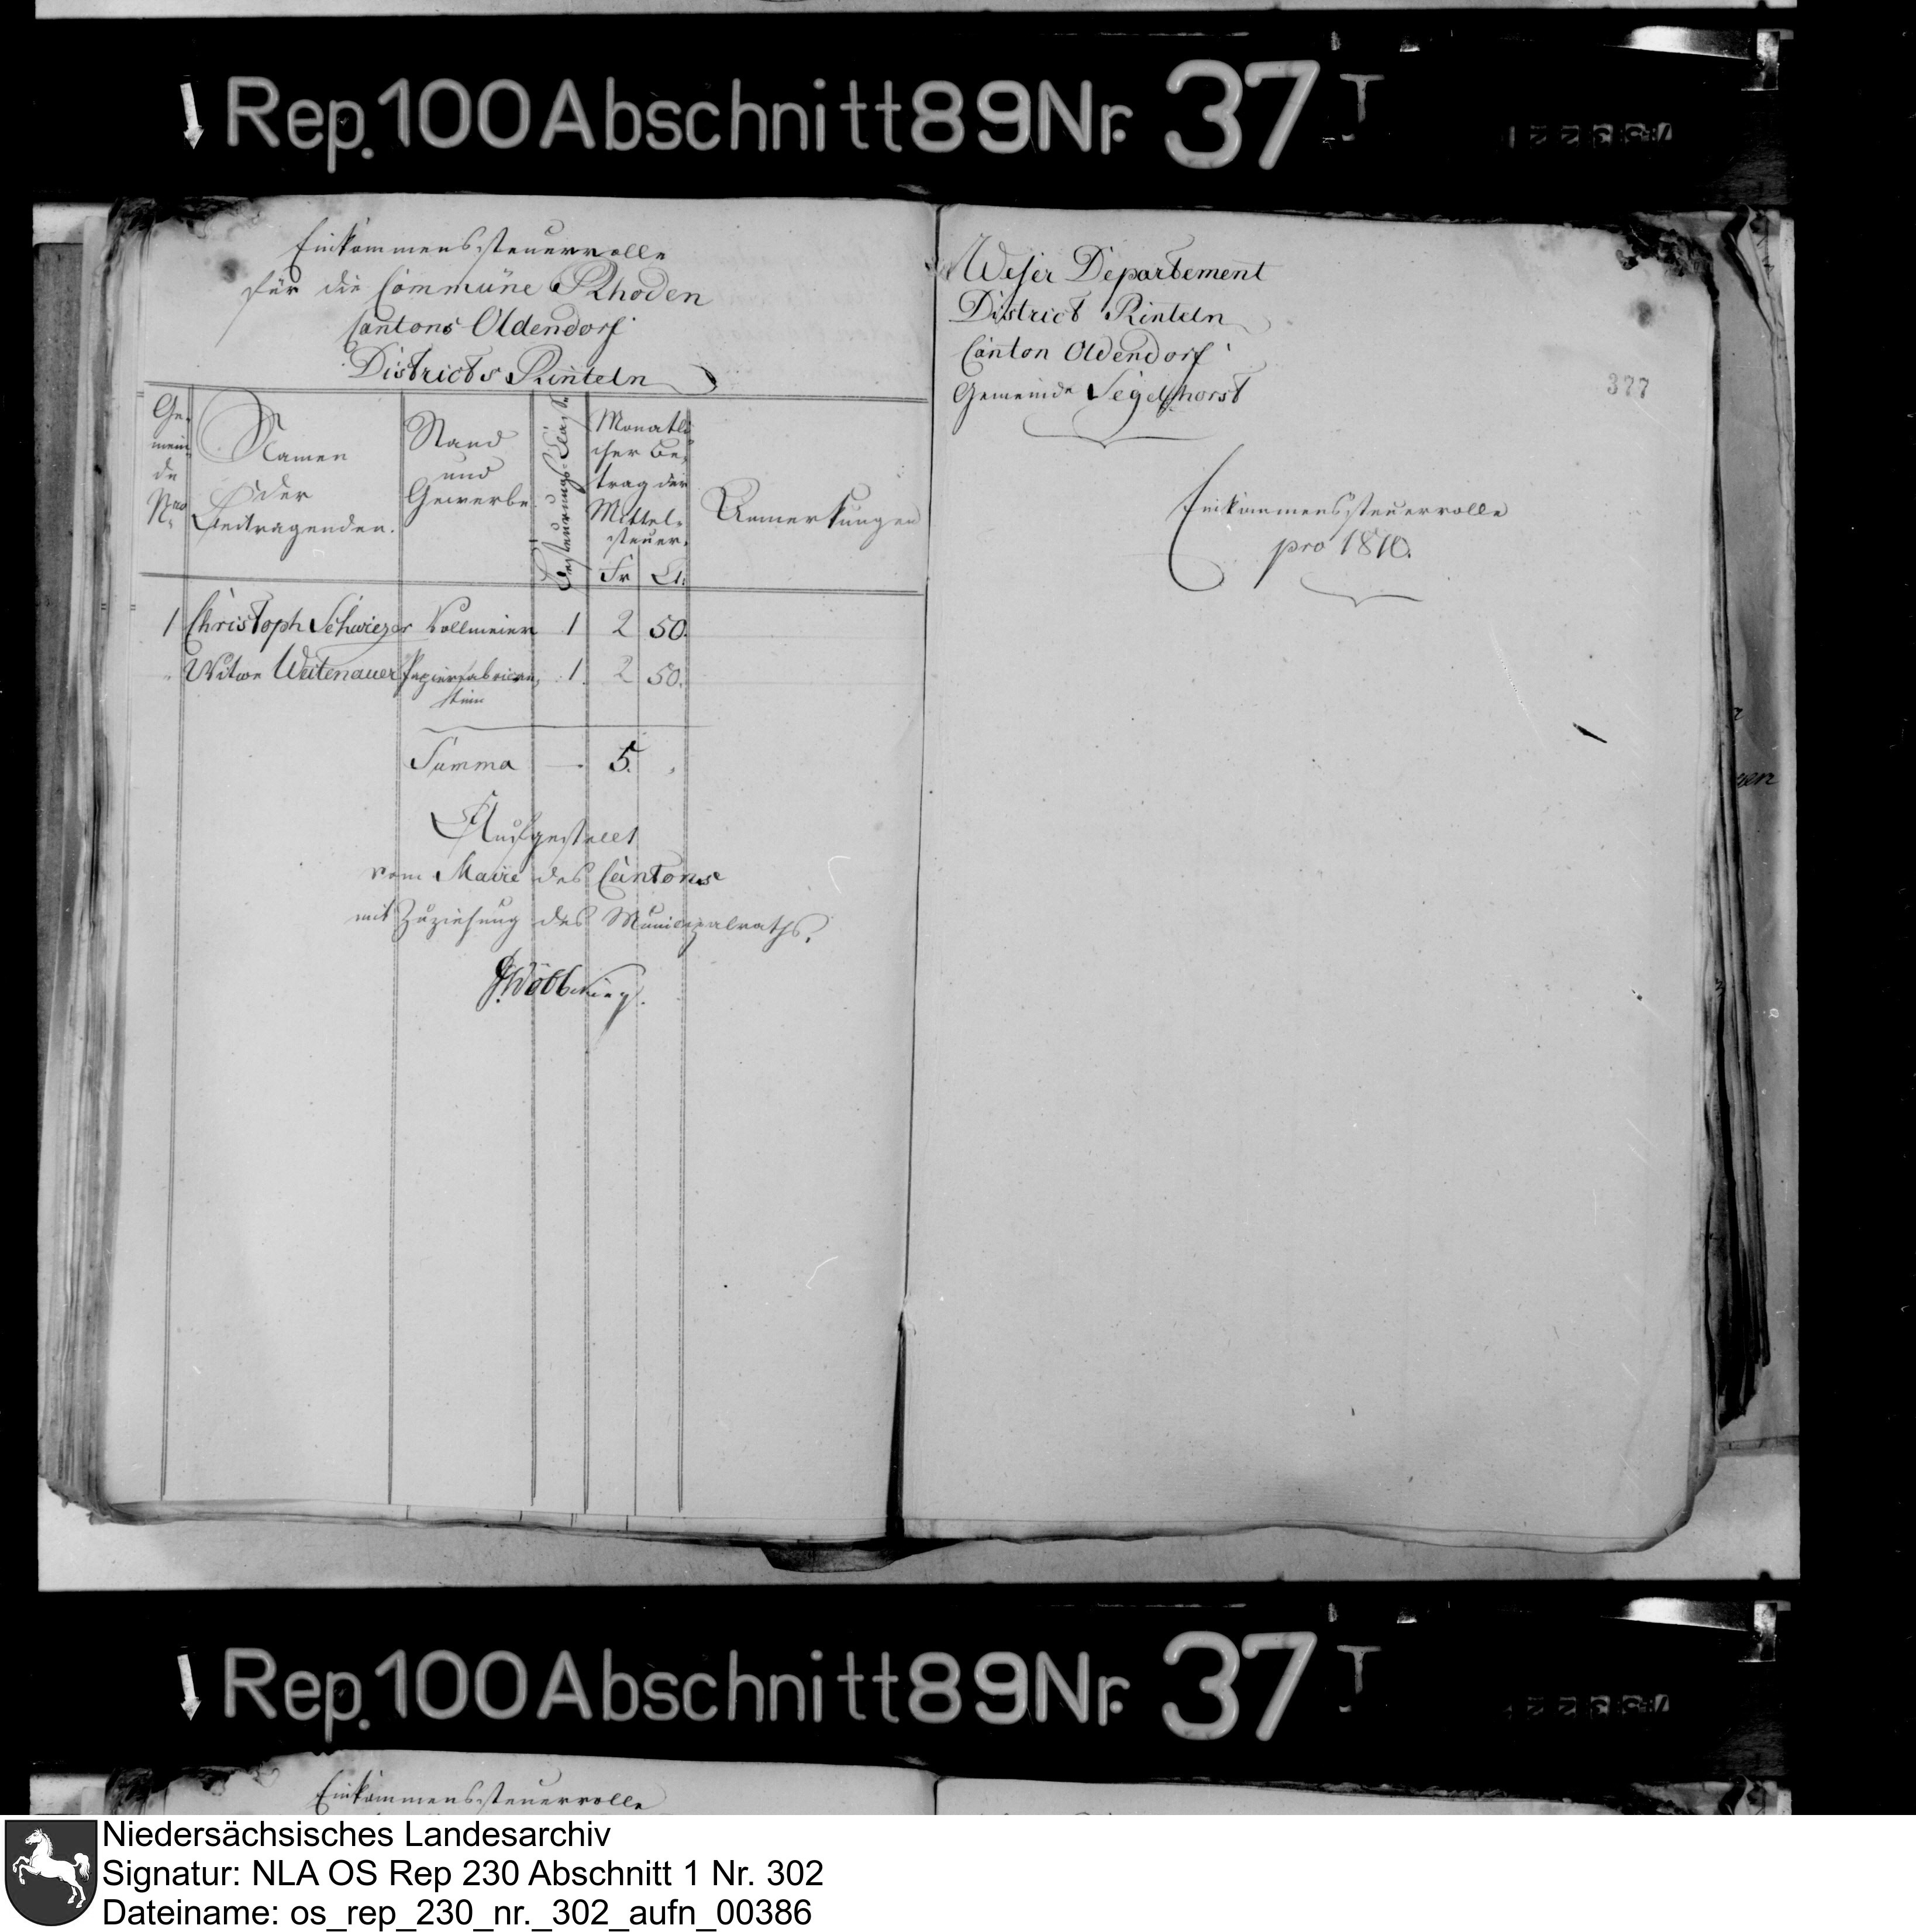 Rep. 100 Abschnitt 89 Nr. 37 I
Einkommenssteuerrolle
für die Commüne Rhoden
Cantons Oldendorf
Districts Rinteln
Ge-
mein-
de
Nro
Namen
der
Beitragenden.
Stand
und
Gewerbe.
Besteuerungs-Classe
Monatli-
cher Be-
trag der
Mittel-
steuer.
Fr Ct.
Anmerkungen
1 Christoph Schwiezer Vollmeier 1 2 50.
Witwe Weitenauer Papierfabrican- 1. 2 50.
stinn
Summa — 5.
Ausgestellt
vom Maire des Cantons
mit Zuziehung des Municipalraths.
Weser Departement
District Rinteln
Canton Oldendorf
Gemeinde Segelhorst
377
Einkommenssteuerrolle
pro 1810.
Rep. 100 Abschnitt 89 Nr. 37 I
Einkommenssteuerrolle
Niedersächsisches Landesarchiv
Signatur: NLA OS Rep 230 Abschnitt 1 Nr. 302
Dateiname: os_rep_230_nr._302_aufn_00386